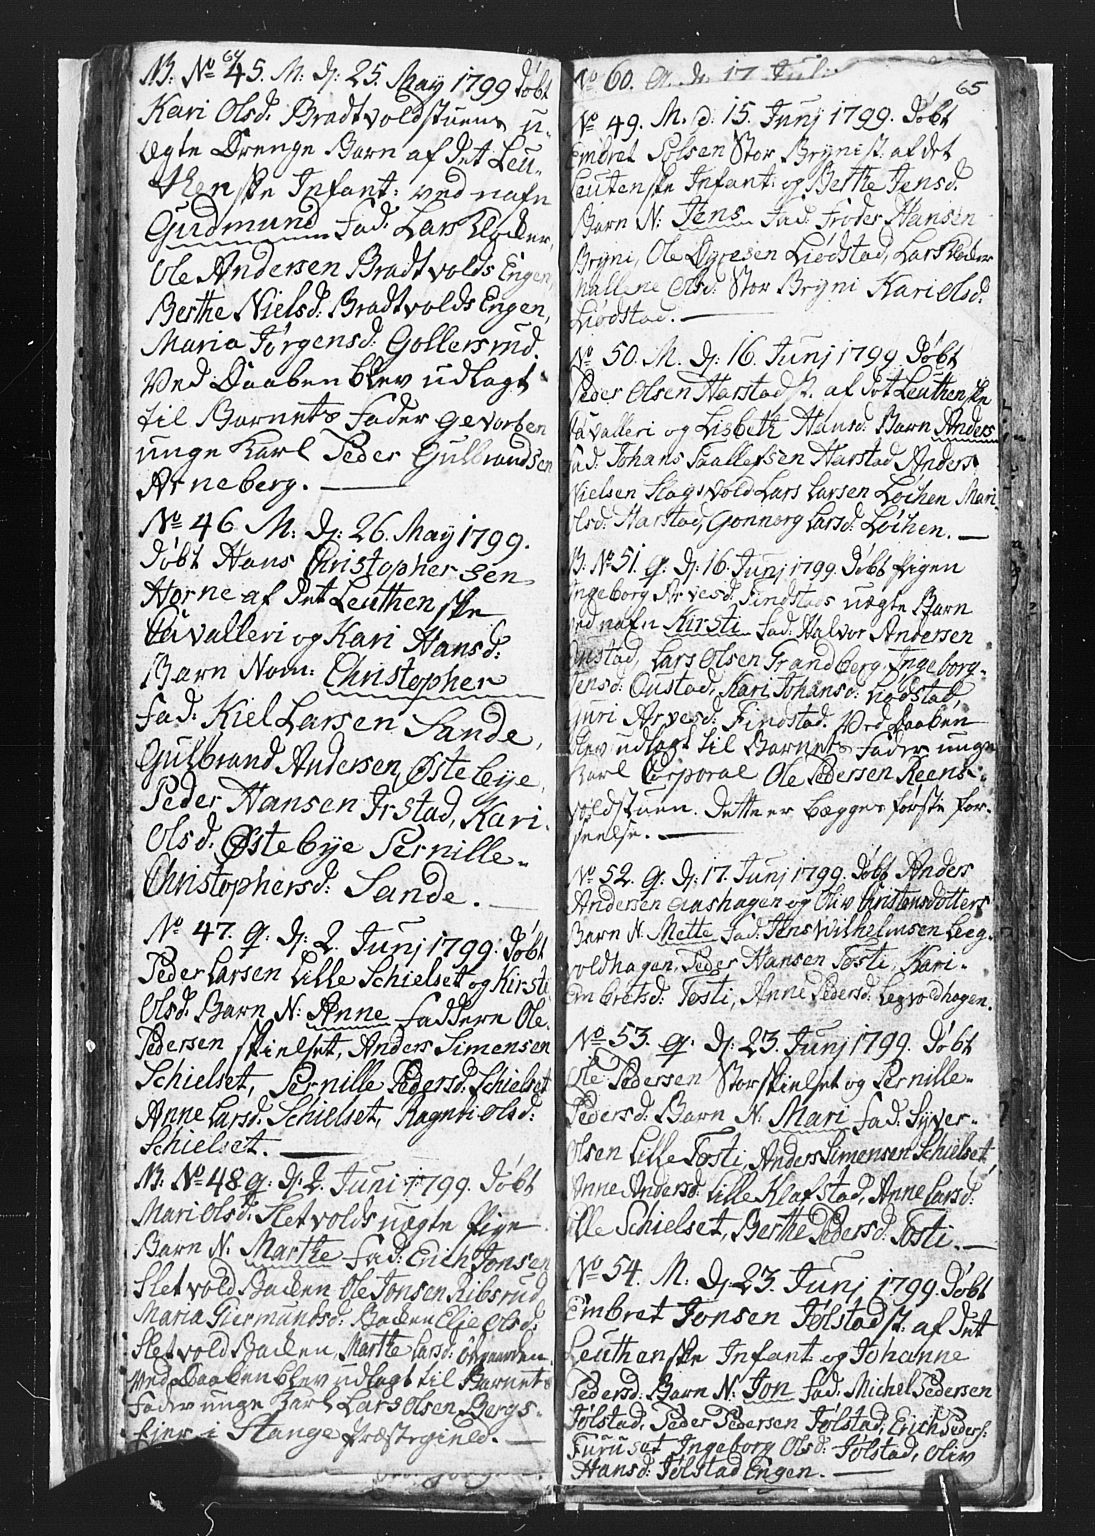 64
NB. No 45. M. D: 25. May 1799 døbt
Kari Olsd. Bradtvoldstuens u-
ægte Drenge Barn af det Leu-
thenske Infant: ved nafn
Gudmund Fad: Lars Klocker,
Ole Andersen Bradtvolds Engen,
Berthe Nielsd: Bradtvolds Engen,
Maria Jørgensd: Gollersrud.
Ved Daaben blev udlagt
til Barnets Fader Gevorben
unge Karl Peder Gulbrandsen
Arneberg.
No 46. M. D: 26. May 1799.
døbt Hans Christophersen
Hørne af det Leuthenske
Cavalleri og Kari Hansd:
Barn Nom: Christopher
Fad: Kiel Larsen Sande,
Gulbrand Andersen Østebye,
Peder Hansen Irstad, Kari
Olsd: Østebye Pernille
Christophersd: Sande.
No 47. Q. D: 2. Junj 1799. døbt
Peder Larsen Lille Schielset og Kirsti
Olsd: Barn N: Anne Faddern Ole
Pedersen Skielset, Anders Simensen
Schielset, Pernille Pedersd: Schielset
Anne Larsd: Schielset, Ragnti Olsd:
Schielset.
NB. No 48 Q. D: 2. Juni 1799. døbt
Mari Olsd: Sletvolds uægte Pige
Barn N: Marthe Fad: Erich Jonsen
Sletvold Backen Ole Jonsen Ribsrud,
Maria Giermundsd: Backen Elie Olsd:
Sletvold Backen, Marthe Larsd:
Ved Daaben blev udlagt til Barnets
Fader unge Karl Lars Olsen Bergs-
eier i Stange Præstegield.
No 60.
65
No 49. M. d: 15. Junj 1799. døbt
Embret Solsen Stor Bryni st. af det
Leutenske Infant: og Berthe Jensd.
Barn N: Jens Fad: Froder Hansen
Bryni, Ole Ogresen Liødstad, Lars Klocker
Mallene Olsd: Stor Bryni Kari Olsd:
Liodstad.
No 50. M. D: 16. Junj 1799 døbt
Peder Olsen Harstad st. af det Leuthenske
Cavalleri og Lisbeth Hansd: Barn Anders
Fad: Johans Paallefsen Harstad Anders
Nielsen Slagsvold Lars Larsen Løchen Mari
Olsd: Harstad, Gonnerg Larsd: Løchen.
NB. No 51. Q. D: 16. Junj 1799. døbt Pigen
Ingeborg Arvesd: Findstads uægte Barn
ved nafn Kirsti Fad: Halvor Andersen
Oustad, Lars Olsen Grandberg, Ingeborg
Jensd: Oustad, Kari Johansd: Lodstad,
Guri Arvesd: Findstad. Ved Daaben
blev udlagt til Barnets Fader unge
Karl Corporal Ole Pedersen Reens-
voldstuen. Dette er begges første for-
seelse.
No 52. Q. D: 17. Junj 1799. døbt Anders
Andersen Aashagen og Oliv Christensdotters
Barn N. Mette Fad: Jens Wilhelmsen Leg-
voldhagen, Peder Hansen Tosti, Kari
Embretsd: Tosti, Anne Pedersd: Legvoldhagen.
No 53. Q. D: 23. Junj 1799. døbt
Ole Pedersen Storskielset og Pernille
Pedersd: Barn N. Mari Fad: Syver
Olsen Lille Tosti, Anders Simensen Schielset,
Anne Andersd: Lille Klafstad, Anne Larsd:
Lille Schielset, Berthe Pedersd: Tosti.
No 54. M. D: 23. Junj 1799. døbt
Embret Jonsen Jølstad st. af det
Leuthenske Infant og Johanne
Pedersd: Barn N: Jon Fad: Michel Pedersen
Jølstad, Peder Pedersen Jølstad, Erich Peders:
Furuset Ingeborg Olsd: Jølstad, Oliv
Hansd: Jølstad Engen.